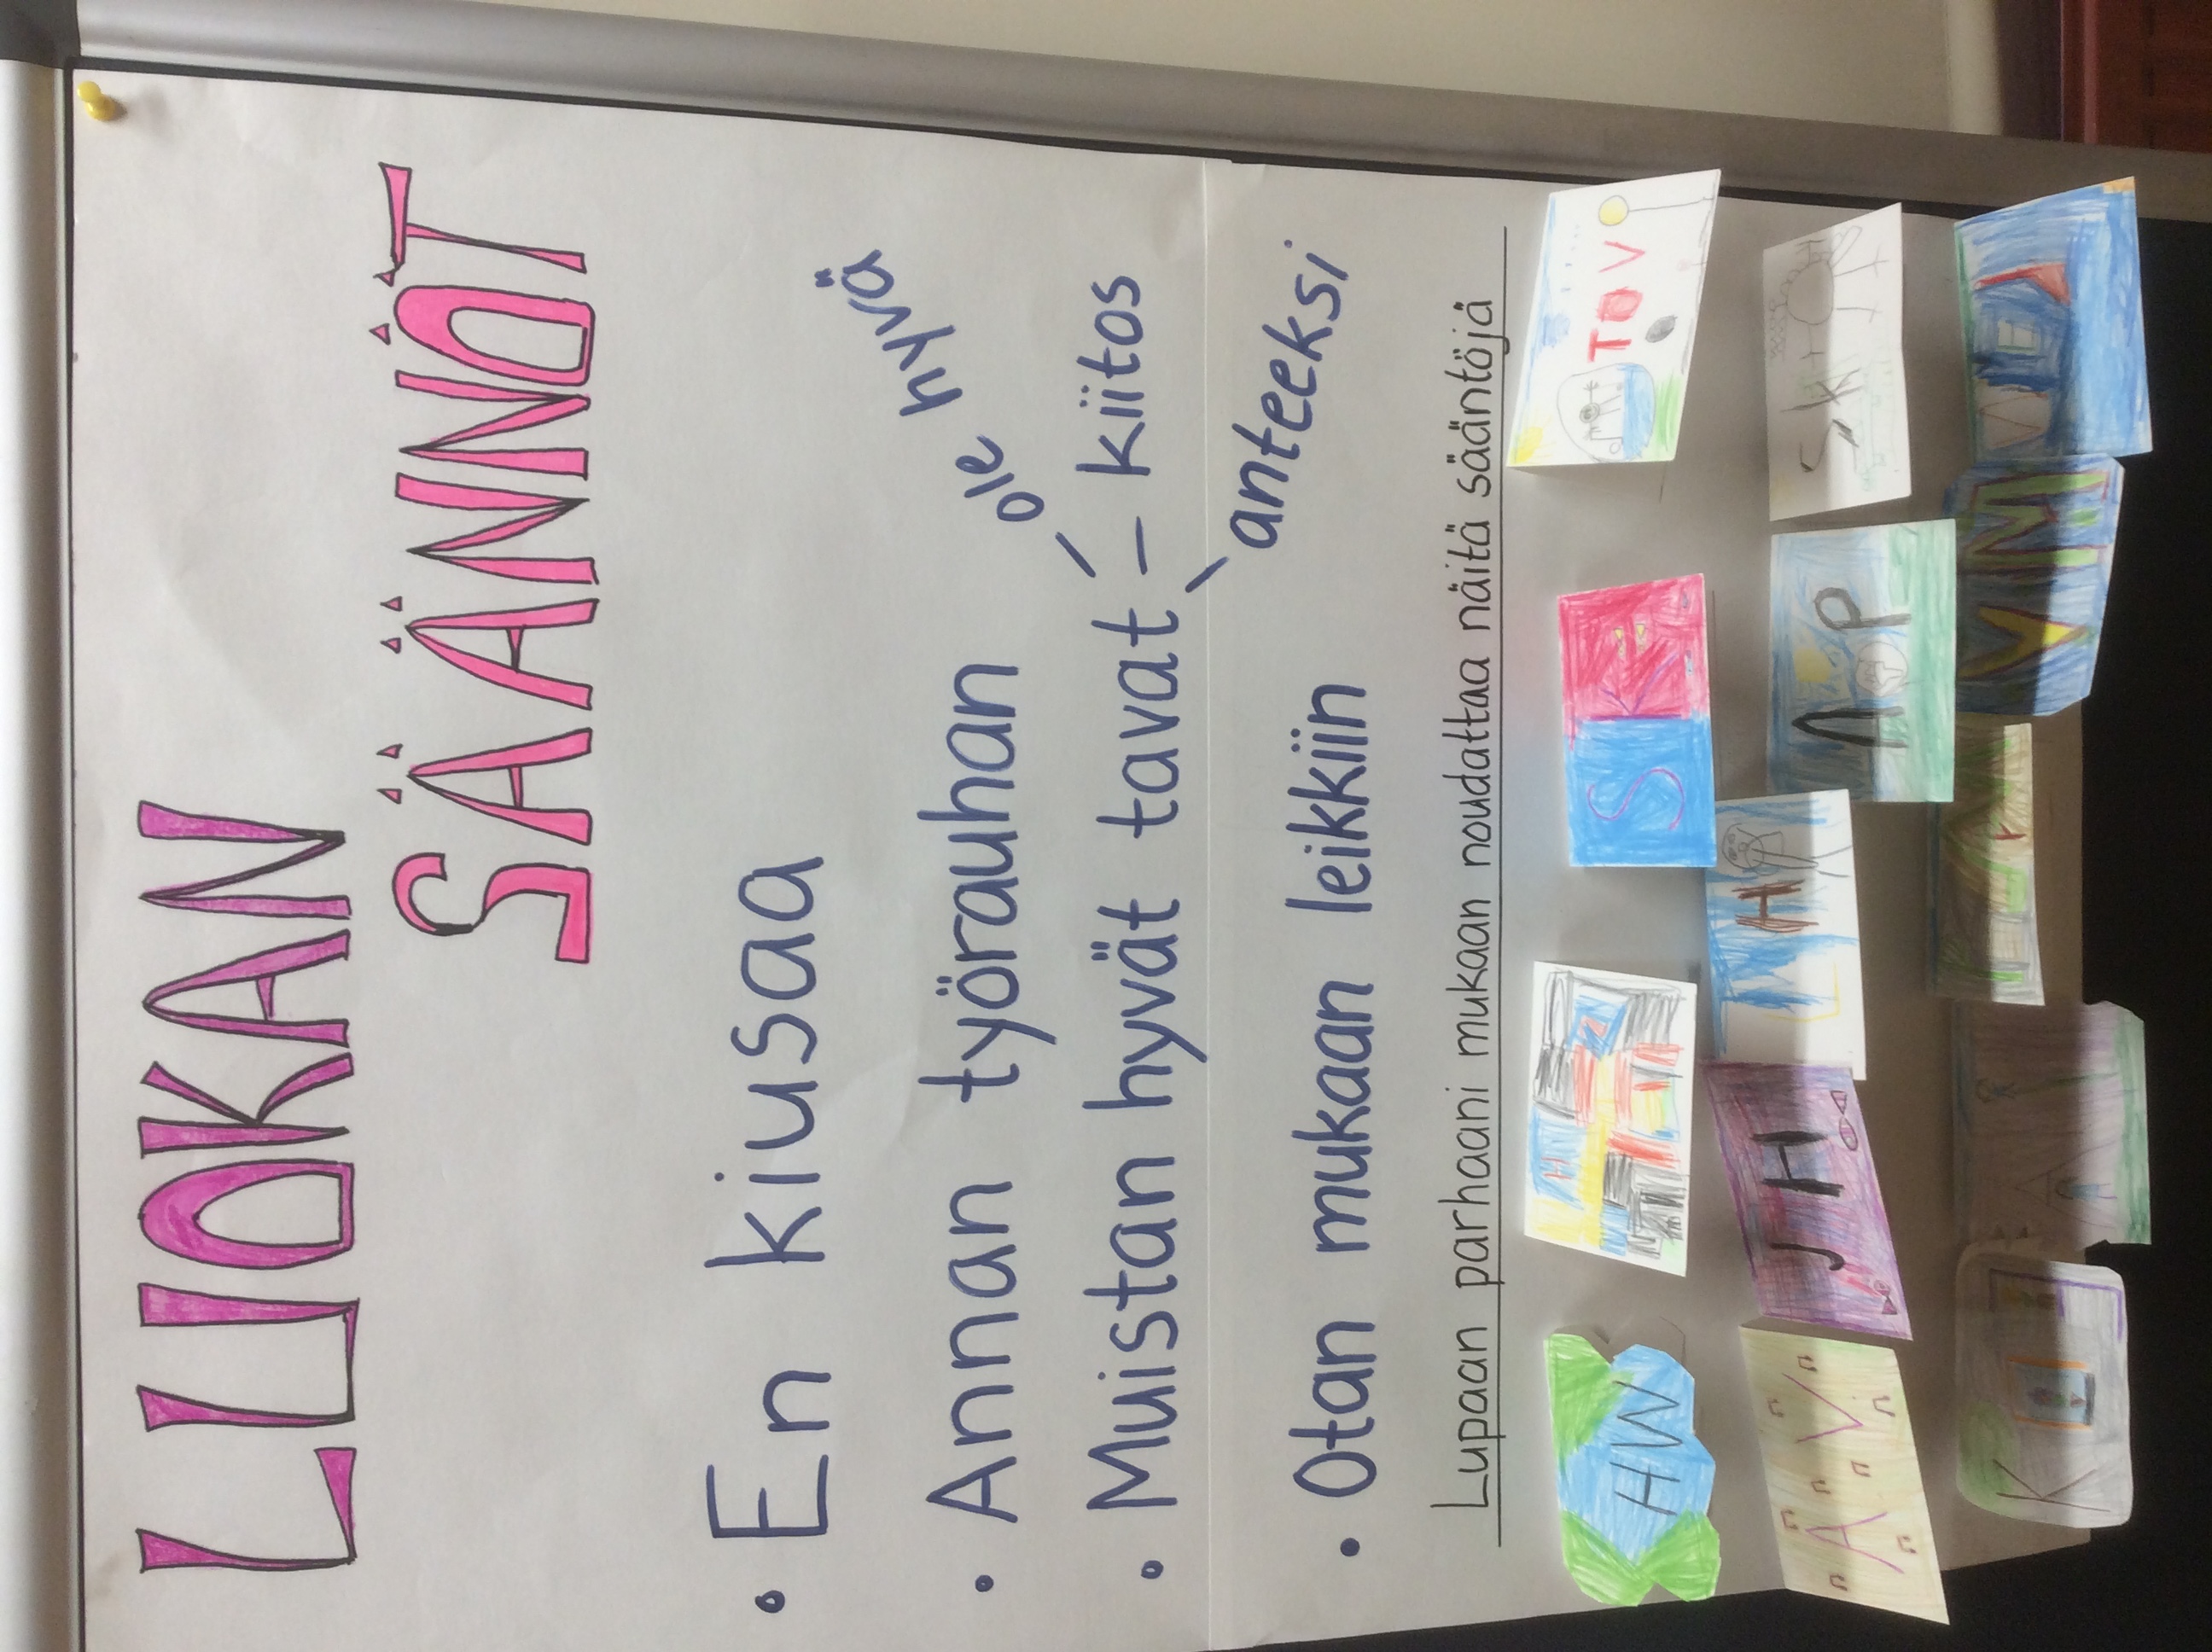 LUOKAN
SÄÄNNÖT
• En kiusaa
• Annan työrauhan
• Muistan hyvät tavat
ole hyvä
– kiitos
anteeksi
• Otan mukaan leikkiin
Lupaan parhaani mukaan noudattaa näitä sääntöjä
HW
SK
TOV
AV
JH
LH
AP
VM